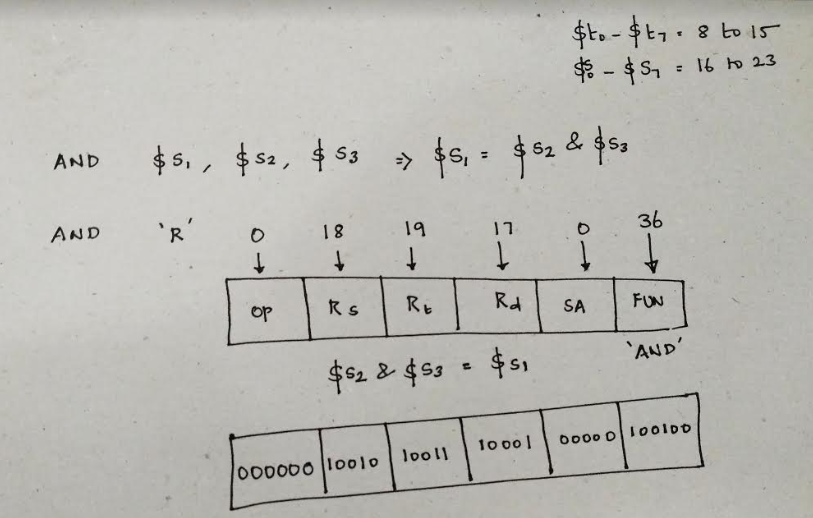 $t0 - $t7 = 8 to 15
$s0 - $s7 = 16 to 23
AND $s1, $s2, $s3 => $s1 = $s2 & $s3
AND 'R' 0 18 19 17 0 36
↓ ↓ ↓ ↓ ↓ ↓
OP Rs Rt Rd SA FUN
'AND'
$s2 & $s3 = $s1
000000 10010 10011 10001 00000 100100